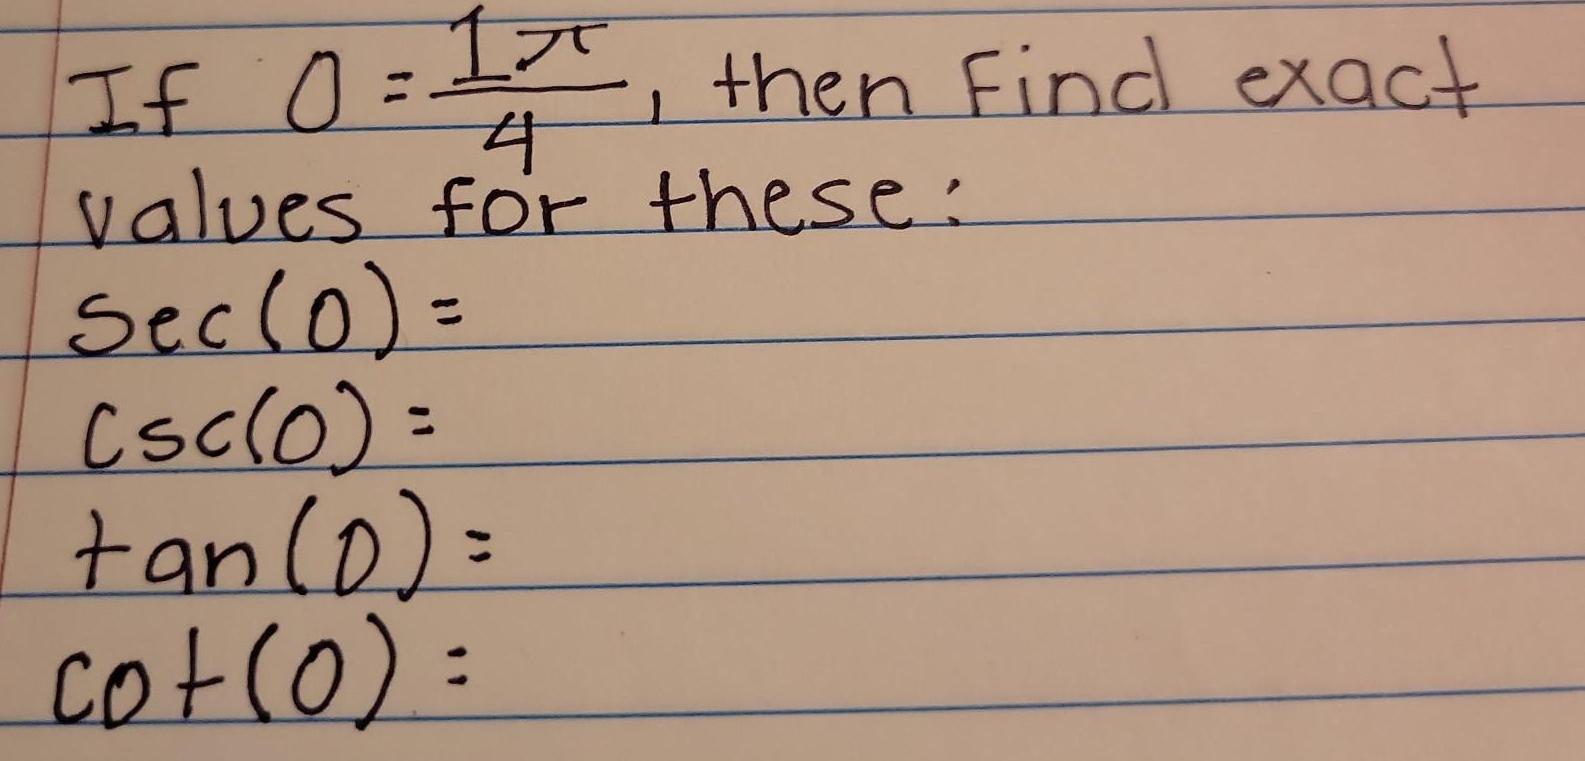 If 0 = 1π/4, then Find exact
values for these:
sec(0) =
csc(0) =
tan(0) =
cot(0) =